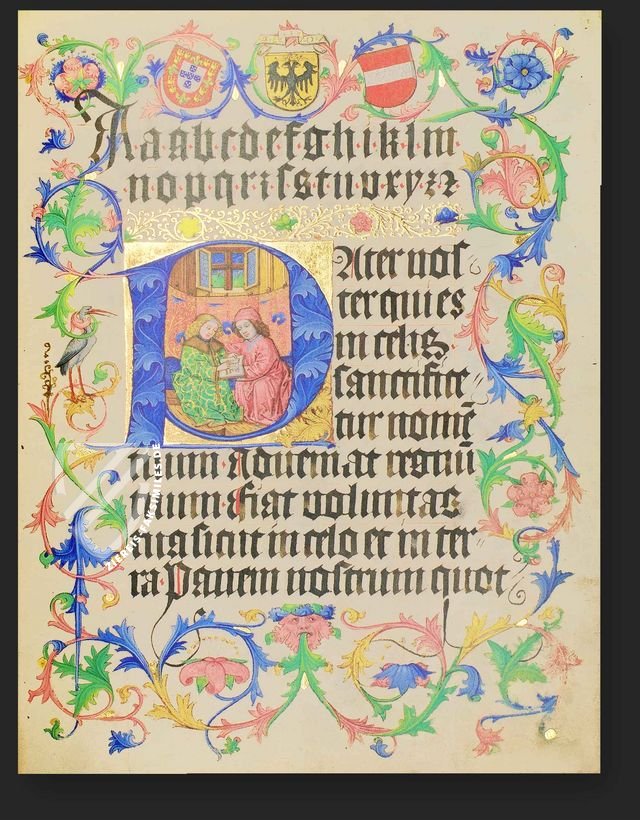 Aaabcdefghiklm
nopqrrſstuvxyz
Pater noſ
ter qui es
in celis
ſanctifice
tur nomē
tuum Adueniat regnū
tuum fiat voluntas
tua ſicut in celo et in ter
ra Panem noſtrum quot
ZIEREIS-FAKSIMILES.DE